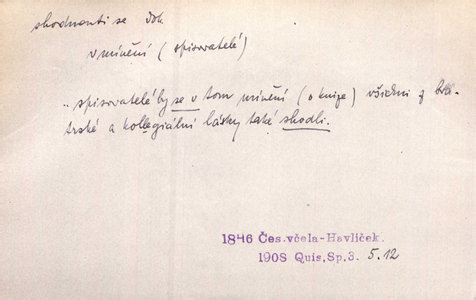 shodnouti se dok
v mínění (spisovatelé)
„ spisovatelé by se v tom mínění (o knize) všichni z bra-
trské a kollegiální lásky také shodli.
1846 Čes.včela-Havlíček.
1908 Quis,Sp.3. 5.12